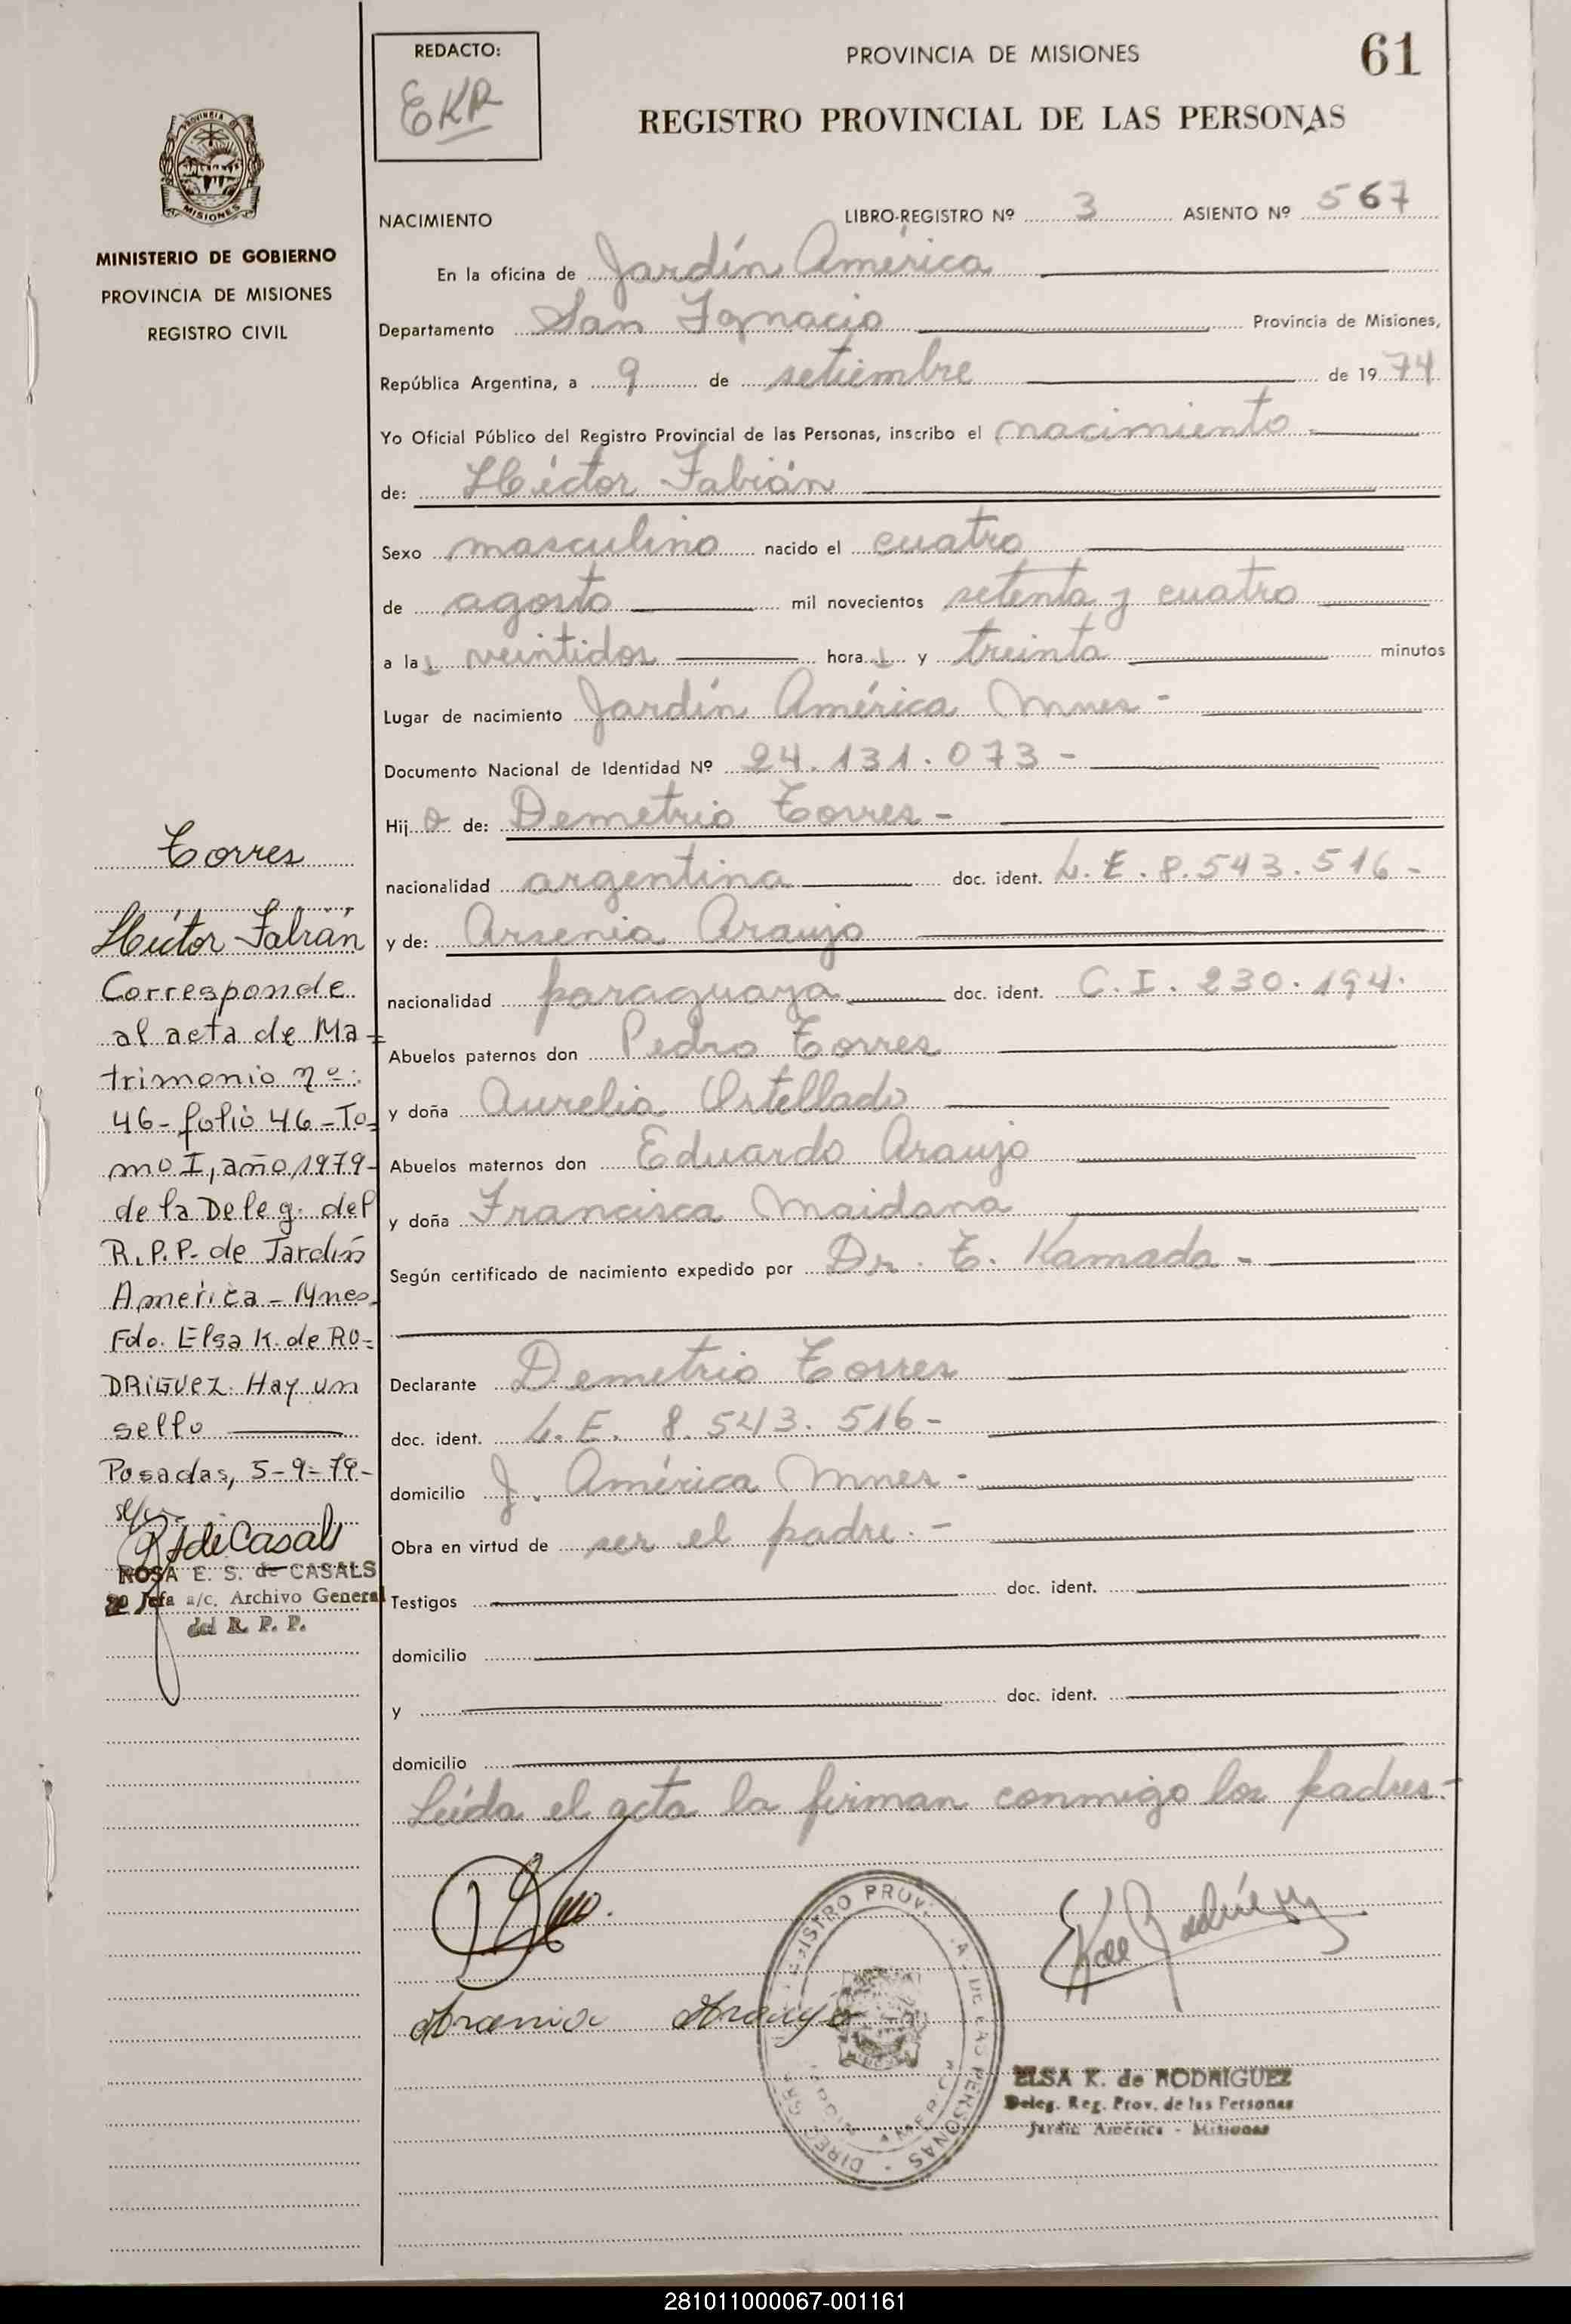 REDACTO:
EKR
PROVINCIA DE MISIONES
61
REGISTRO PROVINCIAL DE LAS PERSONAS
PROVINCIA DE
MISIONES
MINISTERIO DE GOBIERNO
PROVINCIA DE MISIONES
REGISTRO CIVIL
NACIMIENTO
LIBRO-REGISTRO Nº 3 ASIENTO Nº 567
En la oficina de Jardín América
Departamento San Ignacio Provincia de Misiones,
República Argentina, a 9 de setiembre de 1974
Yo Oficial Público del Registro Provincial de las Personas, inscribo el nacimiento
de: Héctor Fabián
Sexo masculino nacido el cuatro
de agosto mil novecientos setenta y cuatro
a las veintidos horas y treinta minutos
Lugar de nacimiento Jardín América Mnes-
Documento Nacional de Identidad Nº 24.131.073-
Hijo de: Demetrio Torres-
nacionalidad argentina doc. ident. L.E. 8.543.516-
y de: Arsenia Araujo
nacionalidad paraguaya doc. ident. C.I. 230.194.
Abuelos paternos don Pedro Torres
y doña Aurelia Ortellado
Abuelos maternos don Eduardo Araujo
y doña Francisca Maidana
Según certificado de nacimiento expedido por Dr. T. Kamada-
Declarante Demetrio Torres
doc. ident. L.E. 8.543.516-
domicilio J. América Mnes-
Obra en virtud de ser el padre.-
Testigos doc. ident.
domicilio
y doc. ident.
domicilio
Leída el acta la firman conmigo los padres.-
Torres
Héctor Fabián
Corresponde
al acta de Ma=
trimonio nº:
46-folio 46-To=
mo I, año 1979-
de la Deleg. del
R.P.P. de Jardín
América-Mnes.
Fdo. Elsa K. de RO=
DRIGUEZ. Hay un
sello
Posadas, 5-9-79-
R S de Casals
ROSA E. S. de CASALS
Jefa a/c. Archivo General
del R. P. P.
Arsenia Araujo
EK de Rodríguez
REGISTRO PROV. DE LAS PERSONAS
JARDIN AMERICA
ELSA K. de RODRIGUEZ
Deleg. Reg. Prov. de las Personas
Jardín América - Misiones
281011000067-001161